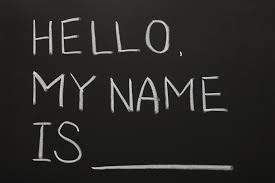 HELLO,
MY NAME
IS ________